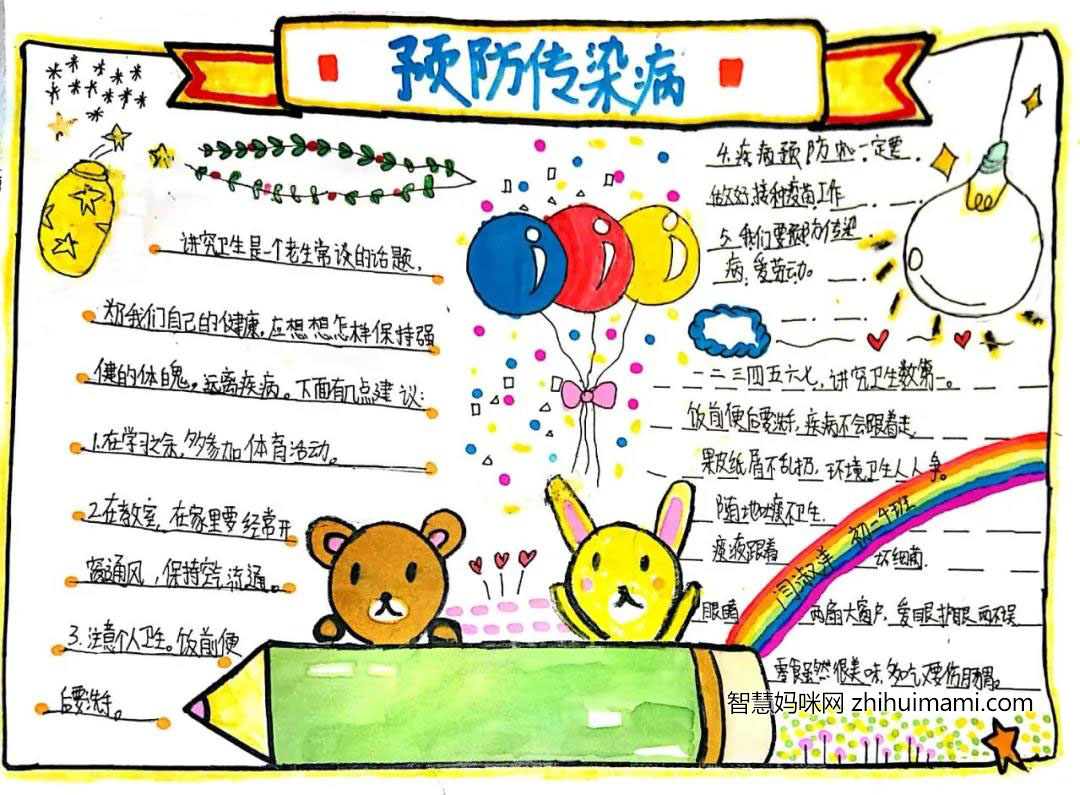 预防传染病
讲究卫生是个老生常谈的话题,
为我们自己的健康,应想想怎样保持强
健的体魄。远离疾病。下面有几点建议:
1.在学习之余,多参加体育活动。
2.在教室,在家里要经常开
窗通风,保持空气流通。
3.注意个人卫生。饭前便
后要洗手。
4.疾病预防也一定要
做好接种疫苗工作
5.我们要预防传染
病,爱劳动。
一二三四五六七,讲究卫生数第一。
饭前便后要洗手,疾病不会跟着走,
果皮纸屑不乱扔,环境卫生人人争。
随地吐痰不卫生,
痰液跟着 坏细菌
闫淑洋 初一个班
眼睛 两扇大窗户,爱眼护眼两不误
零食虽然很美味,多吃又要伤脾胃。
智慧妈咪网 zhihuimami.com